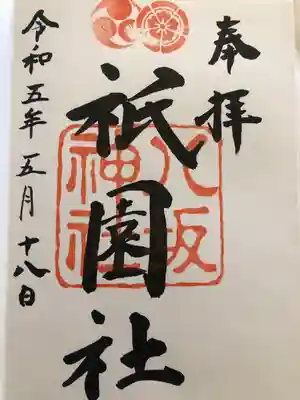 奉拝
祇園社
八坂
神社
令和五年五月十八日